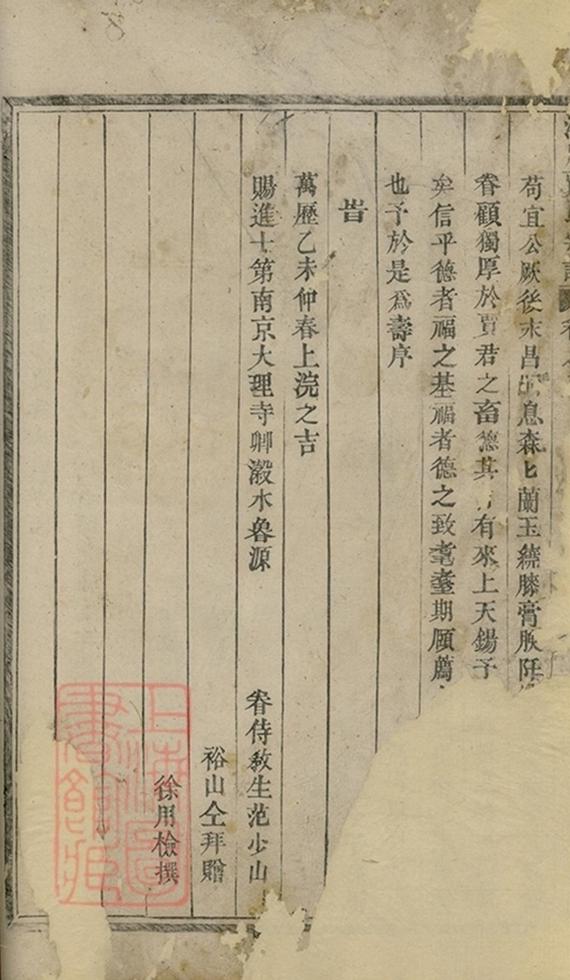 苟宜公厥後末昌息森匕蘭玉繞膝膏腴阡
眷顧獨厚於賈君之畜德其有來上天錫予
矣信乎德者福之基福者德之致耄耋期頤薦
也予於是為壽序
旹
萬歷乙未仲春上浣之吉
賜進士第南京大理寺卿瀫水魯源
眷侍敎生范少山
裕山仝拜贈
徐用檢撰
上海圖書館藏